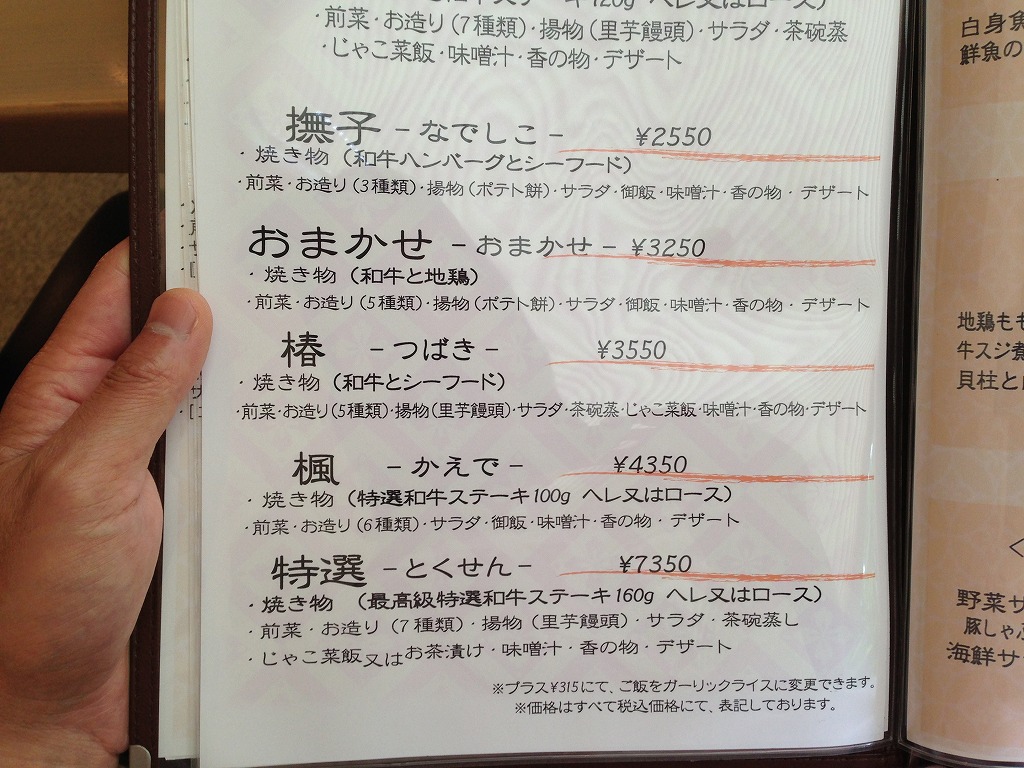 和牛ステーキ120g ヘレ又はロース)
・前菜・お造り(7種類)・揚物(里芋饅頭)・サラダ・茶碗蒸
・じゃこ菜飯・味噌汁・香の物・デザート
撫子 -なでしこ- ¥2550
・焼き物(和牛ハンバーグとシーフード)
・前菜・お造り(3種類)・揚物(ポテト餅)・サラダ・御飯・味噌汁・香の物・デザート
おまかせ -おまかせ- ¥3250
・焼き物(和牛と地鶏)
・前菜・お造り(5種類)・揚物(ポテト餅)・サラダ・御飯・味噌汁・香の物・デザート
椿 -つばき- ¥3550
・焼き物(和牛とシーフード)
・前菜・お造り(5種類)・揚物(里芋饅頭)・サラダ・茶碗蒸・じゃこ菜飯・味噌汁・香の物・デザート
楓 -かえで- ¥4350
・焼き物(特選和牛ステーキ100g ヘレ又はロース)
・前菜・お造り(6種類)・サラダ・御飯・味噌汁・香の物・デザート
特選 -とくせん- ¥7350
・焼き物 (最高級特選和牛ステーキ160g ヘレ又はロース)
・前菜・お造り(7種類)・揚物(里芋饅頭)・サラダ・茶碗蒸し
・じゃこ菜飯又はお茶漬け・味噌汁・香の物・デザート
※プラス¥315にて、ご飯をガーリックライスに変更できます。
※価格はすべて税込価格にて、表記しております。
白身魚
鮮魚の
地鶏もも
牛スジ煮
貝柱と
野菜サ
豚しゃぶ
海鮮サ